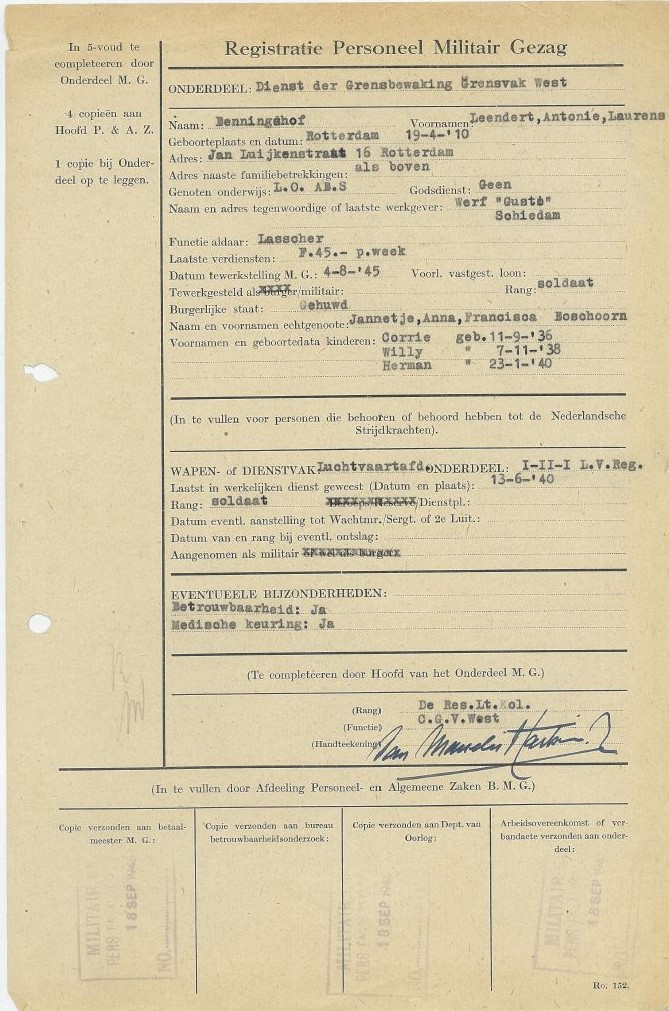 In 5-voud te
completeeren door
Onderdeel M. G.
4 copieën aan
Hoofd P. & A. Z.
1 copie bij Onder-
deel op te leggen.
Registratie Personeel Militair Gezag
ONDERDEEL: Dienst der Grensbewaking Grensvak West
Naam: Benningshof Voornamen: Leendert,Antonie,Laurens
Geboorteplaats en datum: Rotterdam 19-4-'10
Adres: Jan Luijkenstraat 16 Rotterdam
Adres naaste familiebetrekkingen: als boven
Genoten onderwijs: L.O. AB.S Godsdienst: Geen
Naam en adres tegenwoordige of laatste werkgever: Werf "Gusto"
Schiedam
Functie aldaar: Lasscher
Laatste verdiensten: F.45.- p.week
Datum tewerkstelling M. G.: 4-8-'45 Voorl. vastgest. loon:
Tewerkgesteld als burger/militair: Rang: soldaat
Burgerlijke staat: Gehuwd
Naam en voornamen echtgenoote: Jannetje,Anna,Francisca Boschoorn
Voornamen en geboortedata kinderen: Corrie geb.11-9-'36
Willy " 7-11-'38
Herman " 23-1-'40
(In te vullen voor personen die behooren of behoord hebben tot de Nederlandsche
Strijdkrachten).
WAPEN- of DIENSTVAK: Luchtvaartafd. ONDERDEEL: I-II-I L.V.Reg.
Laatst in werkelijken dienst geweest (Datum en plaats): 13-6-'40
Rang: soldaat Beroeps/Reserve/Dienstpl.:
Datum eventl. aanstelling tot Wachtmr./Sergt. of 2e Luit.:
Datum van en rang bij eventl. ontslag:
Aangenomen als militair of wel als burger
EVENTUEELE BIJZONDERHEDEN:
Betrouwbaarheid: Ja
Medische keuring: Ja
(Te completeeren door Hoofd van het Onderdeel M. G.)
(Rang) De Res.Lt.Kol.
(Functie) C.G.V.West
(Handteekening)
(In te vullen door Afdeeling Personeel- en Algemeene Zaken B. M. G.)
Copie verzonden aan betaal-
meester M. G.:
Copie verzonden aan bureau
betrouwbaarheidsonderzoek:
Copie verzonden aan Dept. van
Oorlog:
Arbeidsovereenkomst of ver-
bandacte verzonden aan onder-
deel:
MILITAIR
PERS
18 SEP
NO.
MILITAIR
PERS
18 SEP
NO.
MILITAIR
PERS
18 SEP
NO.
Ro. 152.